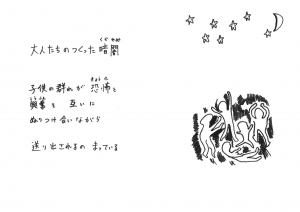 大人たちのつくった暗闇
くらやみ
子供の群れが 恐怖と
きょうふ
興奮を 互いに
ぬりつけ合いながら
送り出されるの まっている